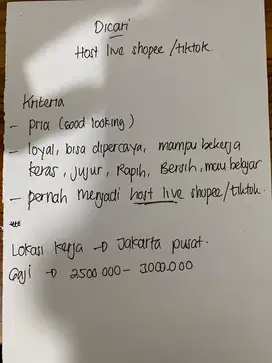 Dicari
Host live shopee/tiktok.
Kriteria
- pria (Good looking)
- loyal, bisa dipercaya, mampu bekerja
keras, jujur, Rapih, Bersih, mau belajar
- pernah menjadi host live shopee/tiktok.
Lokasi kerja → Jakarta pusat.
Gaji → 2500.000 - 3000.000